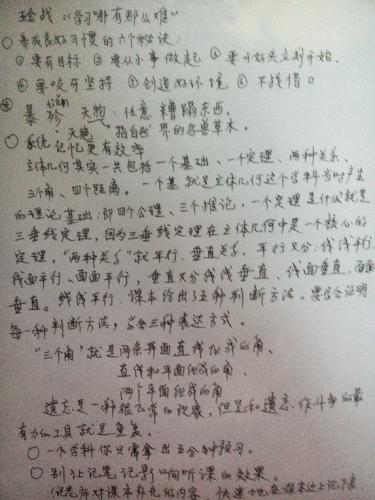 挑战《学习哪有那么难》
○养成良好习惯的六个秘诀:
①要有目标 ②要从小事做起 ③要下好决立刻开始、
④要咬牙坚持 ⑤创造好环境 ⑥不找借口
暴殄天物:任意糟蹋东西。
天物 指自然界的鸟兽草木。
○系统记忆更有效率
立体几何其实一共包括一个基础、一个定理、两种关系、
三个角、四个距离。一个基 就是立体几何这个学科当时产生
的理论基础:即四个公理、三个推论,一个定理是什么就是
三垂线定理,因为三垂线定理在立体几何中是一个核心的
定理,"两种关系"就平行、垂直关系。平行又分:线线平行、
线面平行、面面平行,垂直又分线线垂直、线面垂直、面面
垂直。线线平行:课本给出了五种判断方法。要学会证明
每一种判断方法,学会三种表达方式。
"三个角"就是两条异面直线组成的角、
直线和平面组成的角、
两个平面组成的角
遗忘是一种很正常的现象,但是和遗忘作斗争的最
有力的工具就是重复。
○一个学科你只需拿出五分钟预习。
○别让记笔记影响听课的效果。
老师对课本补充的内容 快速地在课本边上记下来